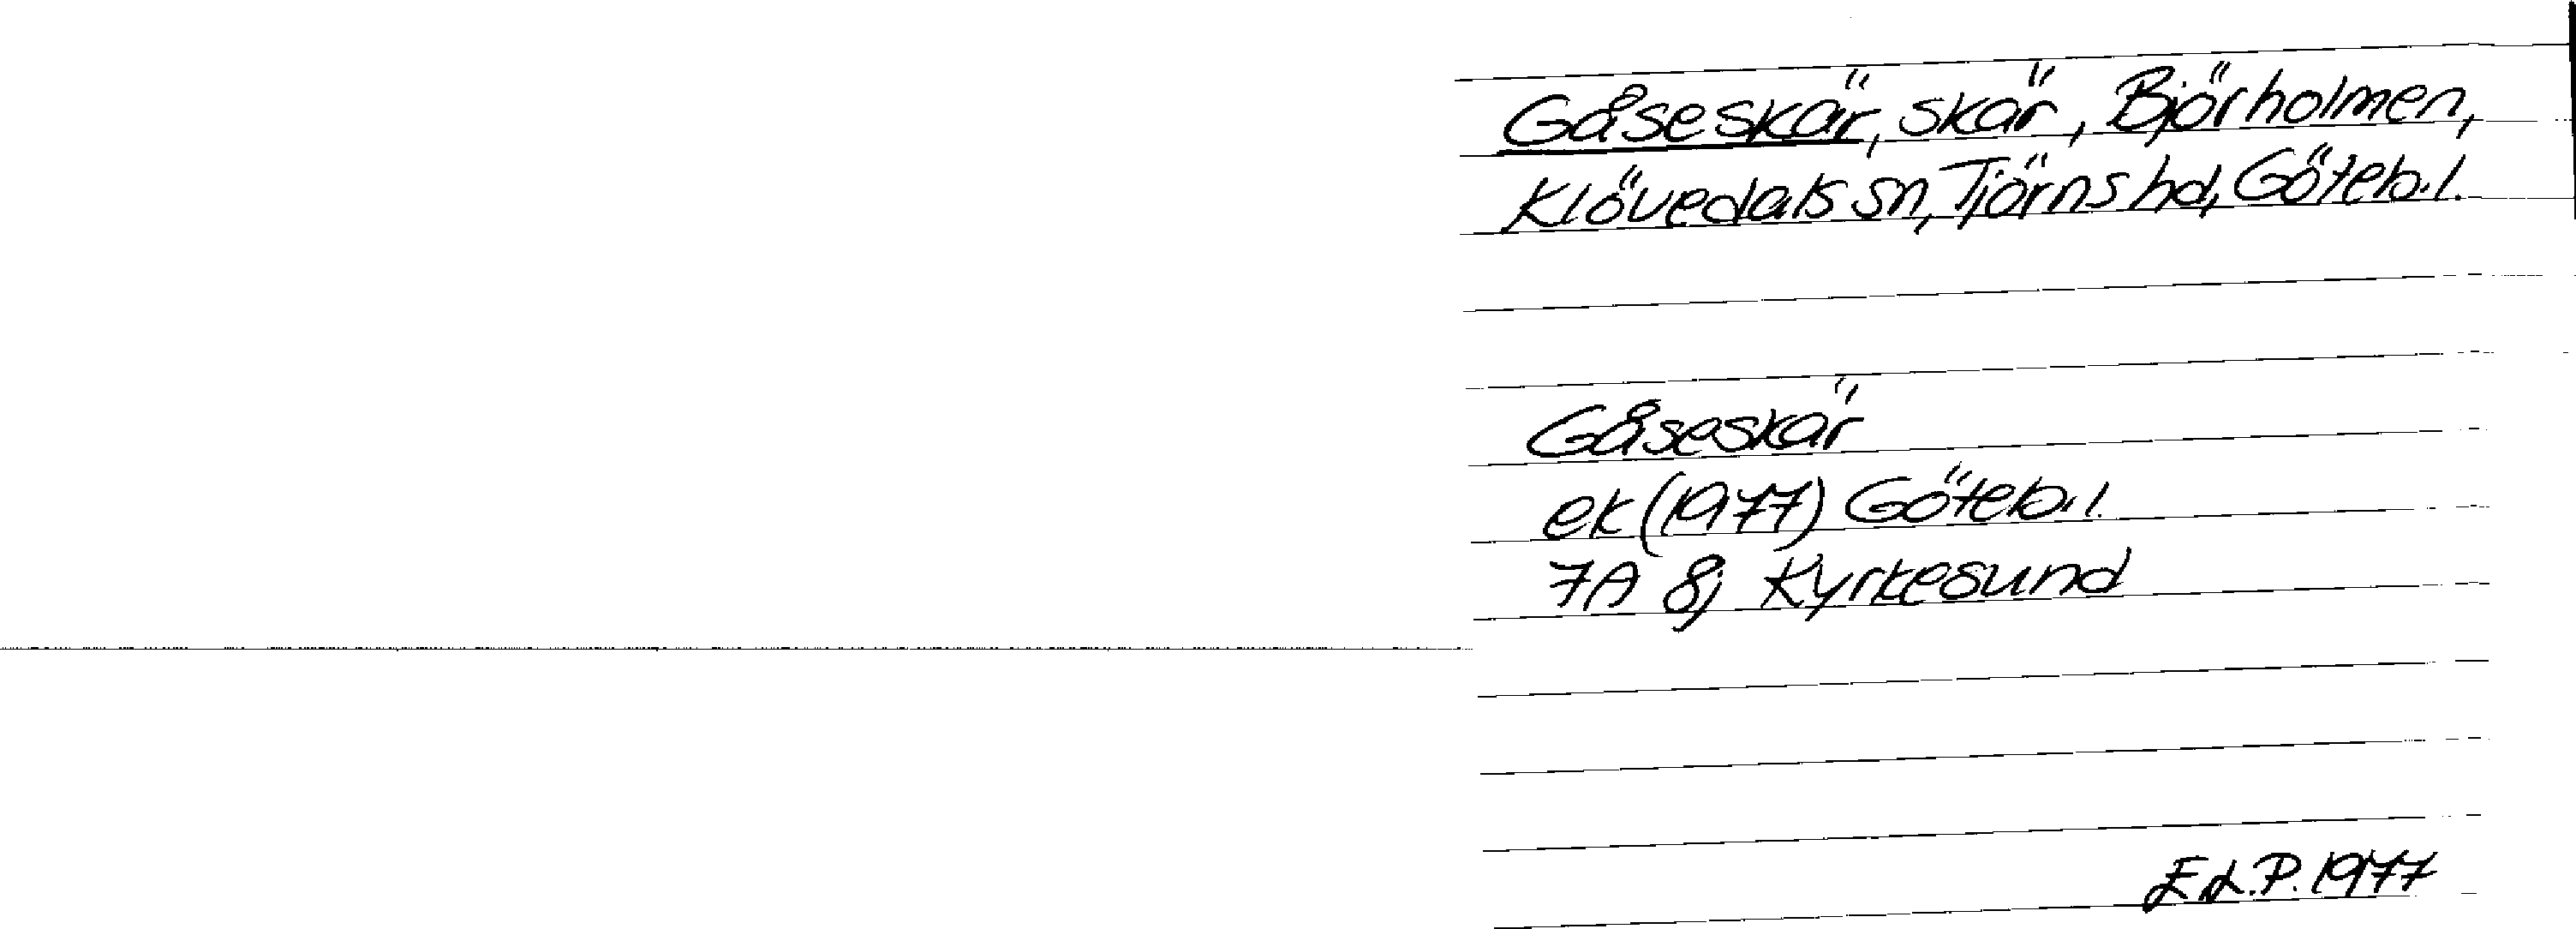 Gåseskär, skär, Björholmen,
Klövedals sn, Tjörns hd, Göteb.l.
Gåseskär
ek (1977) Göteb.l.
7A 8j Kyrkesund
E.L.P. 1977